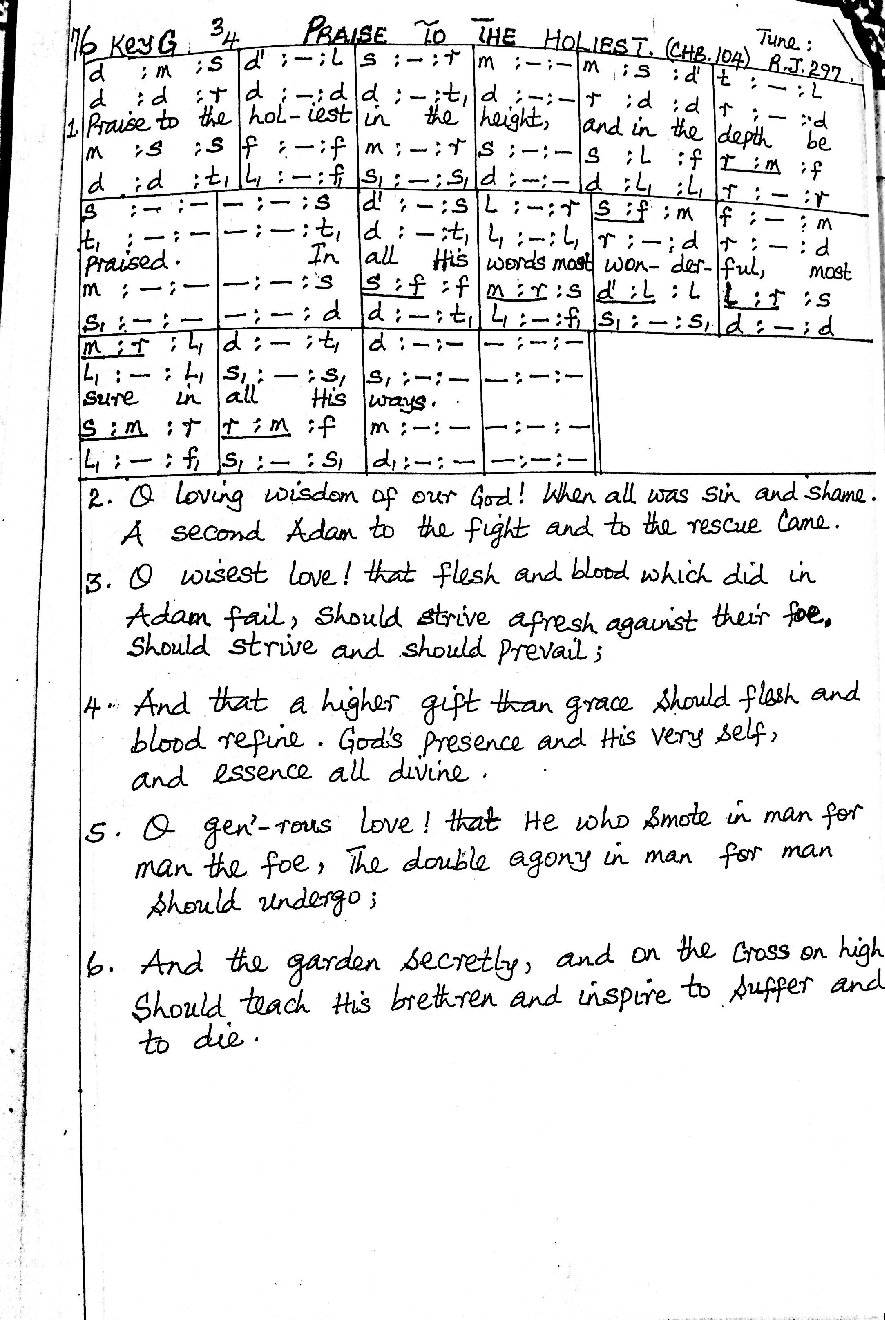 76 Key G 3/4 PRAISE TO THE HOLIEST. (CHB.104) Tune: R.J.297.
d :m :s | d' :– :L | s :– :r | m :–:– | m :s :d' | t :– :L
d :d :r | d :– :d | d :– :t, | d :–:– | r :d :d | r :– :d
1. Praise to the hol-iest in the height, and in the depth be
m :s :s | f :– :f | m :– :r | s :–:– | s :L :f | r :m :f
d :d :t, | L, :– :f, | s, :– :s, | d :–:– | d :L, :L, | r :– :r
s :– :– | – :– :s | d' :– :s | L :– :r | s :f :m | f :– :m
t, :– :– | – :– :t, | d :– :t, | L, :– :L, | r :– :d | r :– :d
praised. In all His words most won-der-ful, most
m :– :– | – :– :s | s :f :f | m :r :s | d' :L :L | L :r :s
s, :– :– | – :– :d | d :– :t, | L, :– :f, | s, :– :s, | d :– :d
m :r :L, | d :– :t, | d :–:– | – :–:–
L, :– :L, | s, :– :s, | s, :–:– | – :–:–
sure in all His ways.
s :m :r | r :m :f | m :–:– | – :–:–
L, :– :f, | s, :– :s, | d, :–:– | – :–:–
2. O loving wisdom of our God! When all was sin and shame.
A second Adam to the fight and to the rescue Came.
3. O wisest love! that flesh and blood which did in
Adam fail, Should strive afresh against their foe.
Should strive and should prevail;
4. And that a higher gift than grace should flesh and
blood refine. God's presence and His very self,
and essence all divine.
5. O gen'-rous love! that He who smote in man for
man the foe, The double agony in man for man
should undergo;
6. And the garden secretly, and on the Cross on high
Should teach His brethren and inspire to suffer and
to die.